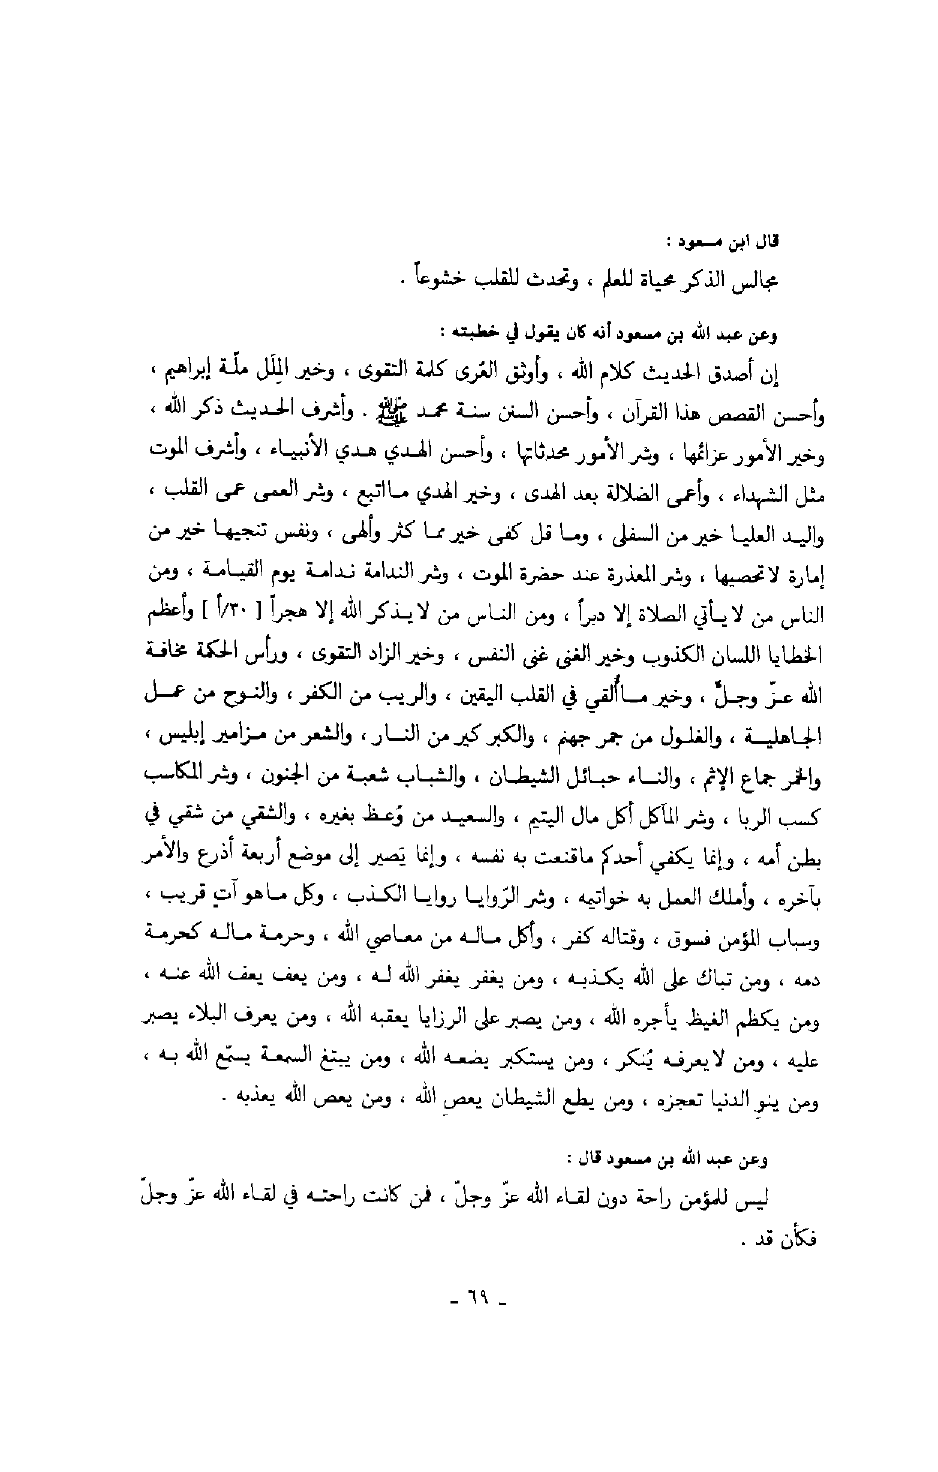 قال ابن مسعود :
مجالس الذكر محياة للعلم ، وتحدث للقلب خشوعاً .
وعن عبد الله بن مسعود أنه كان يقول في خطبته :
إن أصدق الحديث كلام الله ، وأوثق العُرى كلمة التقوى ، وخير المِلَل ملّة إبراهيم ،
وأحسن القصص هذا القرآن ، وأحسن السنن سنة محمد ﷺ . وأشرف الحديث ذكر الله ،
وخير الأمور عزائمها ، وشر الأمور محدثاتها ، وأحسن الهدي هدي الأنبياء ، وأشرف الموت
مثل الشهداء ، وأعمى الضلالة بعد الهدى ، وخير الهدي مااتبع ، وشر العمى عمى القلب ،
واليد العليا خير من السفلى ، وما قل كفى خير مما كثر وألهى ، ونفس تنجيها خير من
إمارة لاتحصيها ، وشر المعذرة عند حضرة الموت ، وشر الندامة ندامة يوم القيامة ، ومن
الناس من لا يأتي الصلاة إلا دبراً ، ومن الناس من لايذكر الله إلا هجراً [ ٣٠/أ ] وأعظم
الخطايا اللسان الكذوب وخير الغنى غنى النفس ، وخير الزاد التقوى ، ورأس الحكمة مخافة
الله عزّ وجلّ ، وخير ماأُلقي في القلب اليقين ، والريب من الكفر ، والنوح من عمل
الجاهلية ، والغلول من جمر جهنم ، والكبر كير من النار ، والشعر من مزامير إبليس ،
والخمر جماع الإثم ، والنساء حبائل الشيطان ، والشباب شعبة من الجنون ، وشر المكاسب
كسب الربا ، وشر المآكل أكل مال اليتيم ، والسعيد من وُعظ بغيره ، والشقي من شقي في
بطن أمه ، وإنما يكفي أحدكم ماقنعت به نفسه ، وإنما يَصير إلى موضع أربعة أذرع والأمر
بآخره ، وأملك العمل به خواتيمه ، وشر الرّوايا روايا الكذب ، وكل ماهو آتٍ قريب ،
وسباب المؤمن فسوق ، وقتاله كفر ، وأكل ماله من معاصي الله ، وحرمة ماله كحرمة
دمه ، ومن تباك على الله يكذبه ، ومن يغفر يغفر الله له ، ومن يعف يعف الله عنه ،
ومن يكظم الغيظ يأجره الله ، ومن يصبر على الرزايا يعقبه الله ، ومن يعرف البلاء يصبر
عليه ، ومن لايعرفه يُنكر ، ومن يستكبر يضعه الله ، ومن يبتغ السمعة يسمّع الله به ،
ومن ينوِ الدنيا تعجزه ، ومن يطع الشيطان يعصِ الله ، ومن يعص الله يعذبه .
وعن عبد الله بن مسعود قال :
ليس للمؤمن راحة دون لقاء الله عزّ وجلّ ، فمن كانت راحته في لقاء الله عزّ وجلّ
فكأن قد .
- ٦٩ -